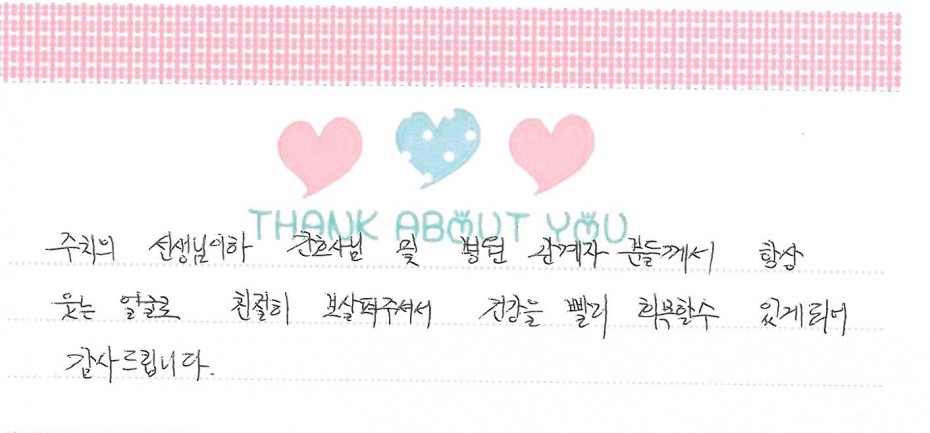 THANK ABOUT YOU
주치의 선생님이하 간호사님 및 병원 관계자 분들께서 항상
웃는 얼굴로 친절히 보살펴주셔서 건강을 빨리 회복할수 있게되어
감사드립니다.